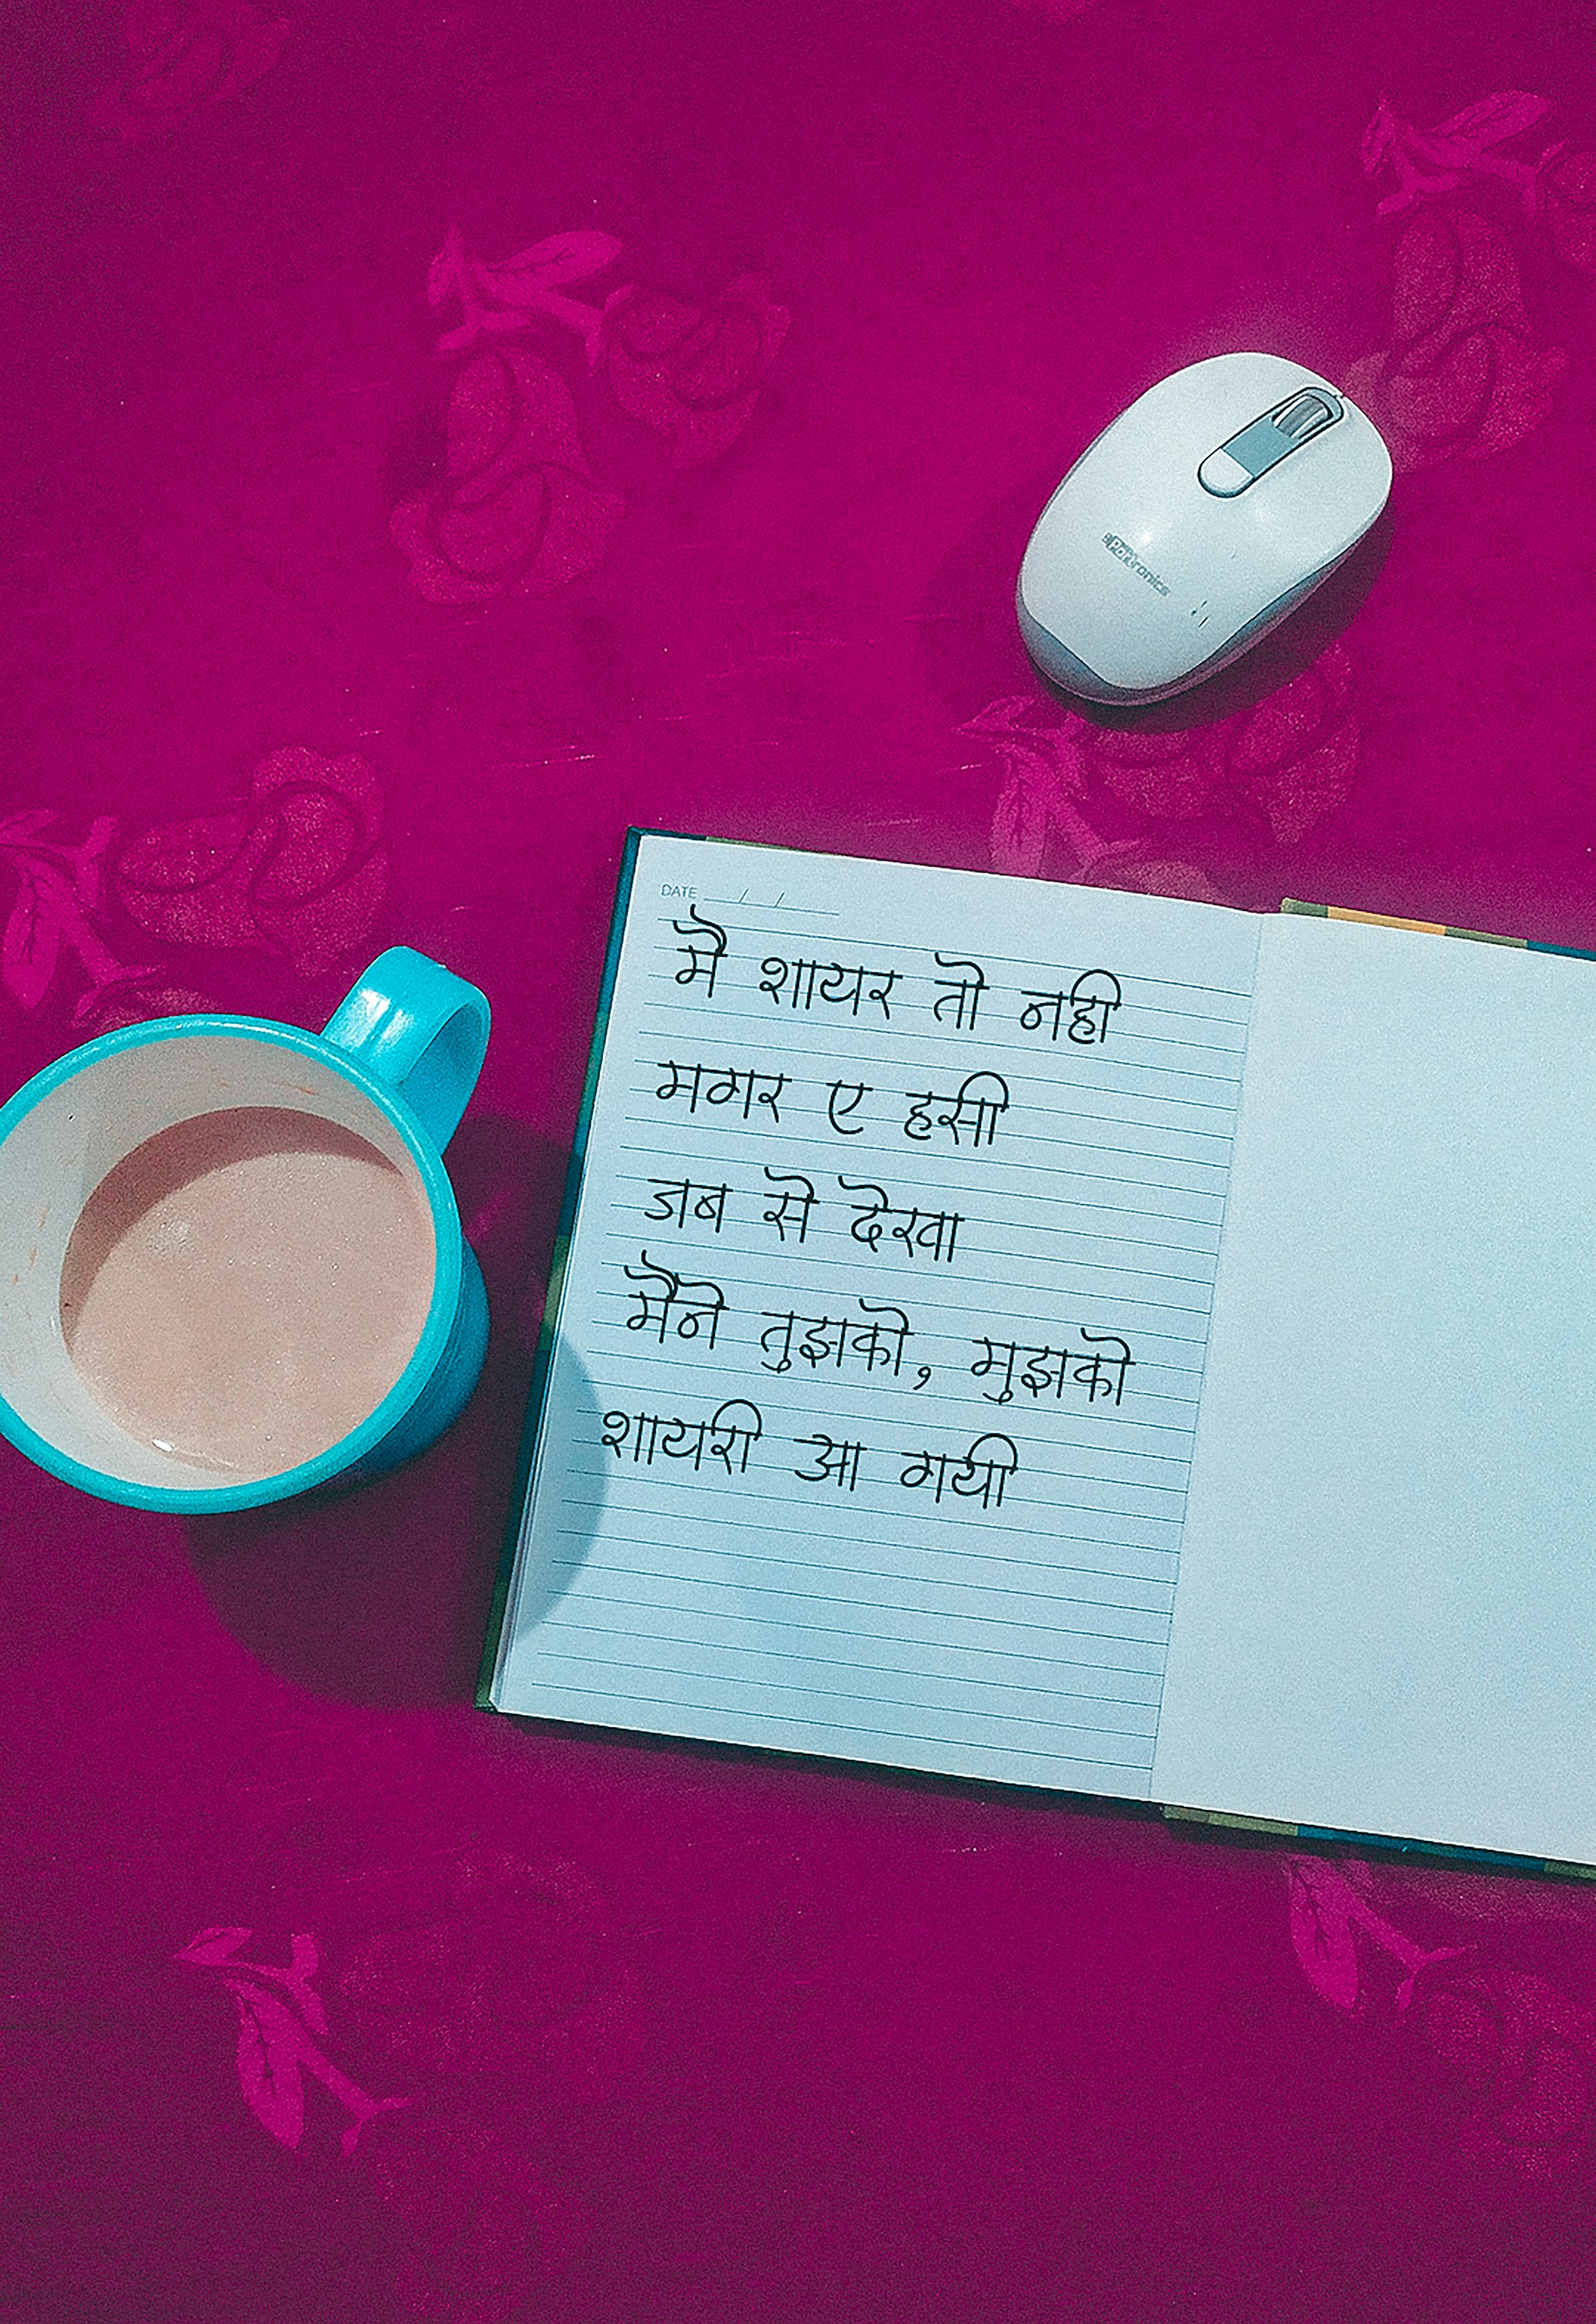 Portronics
DATE / /
मै शायर तो नही
मगर ए हसी
जब से देखा
मैने तुझको, मुझको
शायरी आ गयी